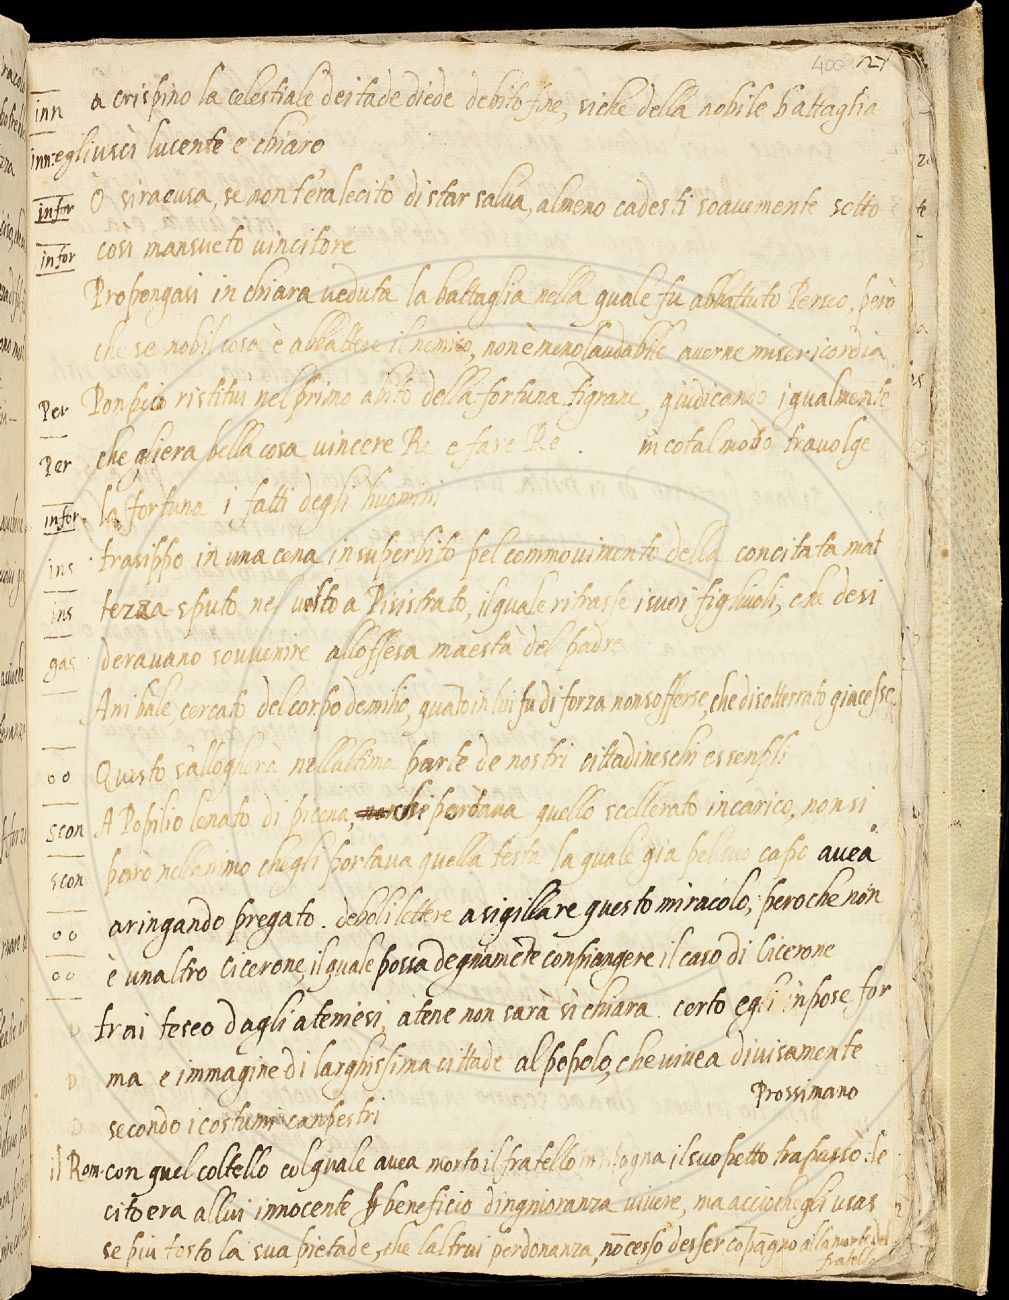 400 27
inn a crispino la celestiale deitade diede debito fine, siche della nobile battaglia
inn: egli uscì lucente e chiaro
infor O siracusa, se non t'era lecito di star salva, almeno cadesti soavemente sotto
infor cosi mansueto vincitore
Propongasi in chiara veduta la battaglia nella quale fu abbattuto Perseo, però
che se nobil cosa è abbattere il nemico, non è meno laudabile averne misericordia
Per Ponpeio ristituì nel primo abito della fortuna Tigrane, giudicando igualmente
Per che gliera bella cosa vincere Re e fare Re. in cotal modo travolge
infor la fortuna i fatti degli huomini
ins trasippo in una cena insuperbito pel commovimento della concitata mat
ins tezza sputo nel volto a Pisistrato, il quale ritrasse i suoi figliuoli, che desi
gas deravano sovvenire alloffesa maestà del padre
Anibale, cercato del corpo demilio, quato in lui fu di forza non sofferse, che disotterrato giacesse
oo Questo s'allogherà nellultima parte de nostri cittadineschi essenpli
scon A Popilio lenato di picena, portava quello scellerato incarico, non si
scon però nellanimo chegli portava quella testa la quale gia pel suo capo avea
oo aringando pregato. deboli lettere a sigillare questo miracolo, peroche non
oo è unaltro Cicerone, il quale possa degnamete conpiangere il caso di Cicerone
D trai teseo dagli ateniesi, atene non sarà sì chiara. certo egli inpose for
D ma e immagine di larghissima cittade al popolo, che vivea divisamente
D secondo i costumi canpestri
Prossimano
il Rom. con quel coltello col quale avea morto il fratello il suo petto trapassò: le
cito era allui innocente beneficio dingnioranza vivere, ma accioche gli usas
se piu tosto la sua pietade, che laltrui perdonanza, no cesso desser copagno alla morte del
fratello